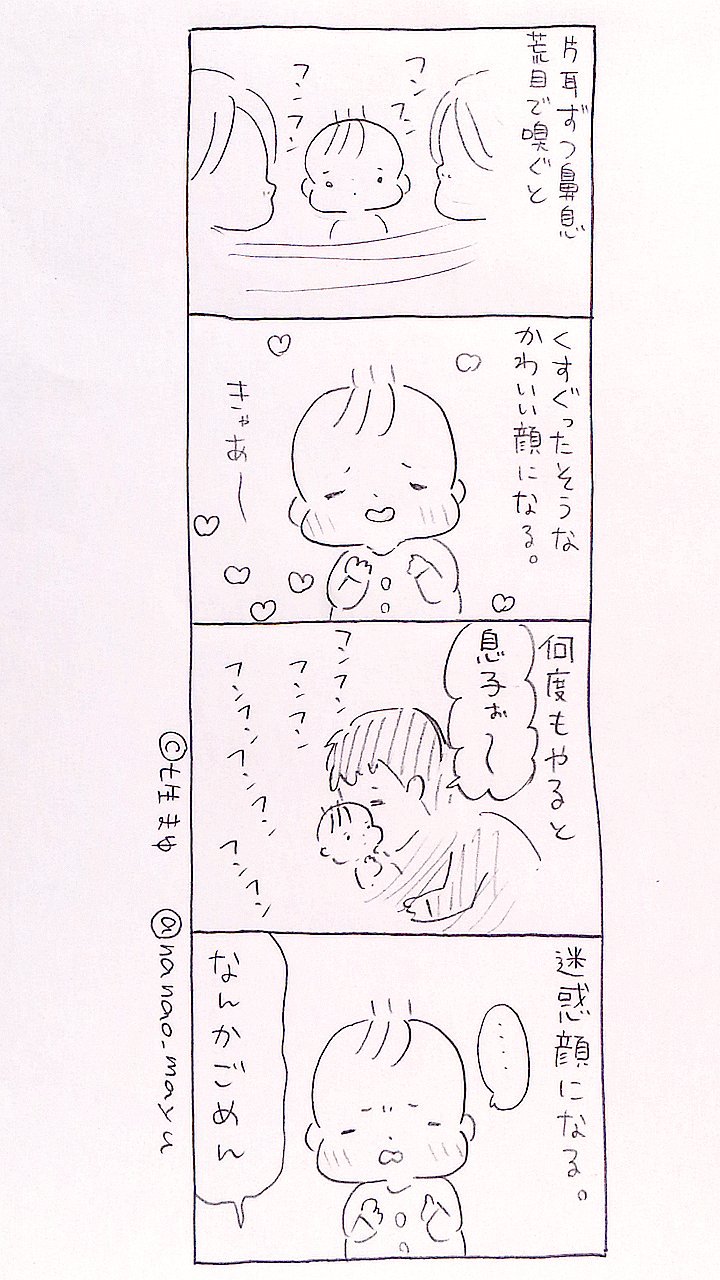 片耳ずつ鼻息
荒目で嗅ぐと
フンフン
フンフン
くすぐったそうな
かわいい顔になる。
きゃあ〜
何度もやると
息子ぉ〜
フンフン
フンフン
フンフンフンフン
フンフン
迷惑顔になる。
……
なんかごめん
©七生まゆ
@nanao_mayu